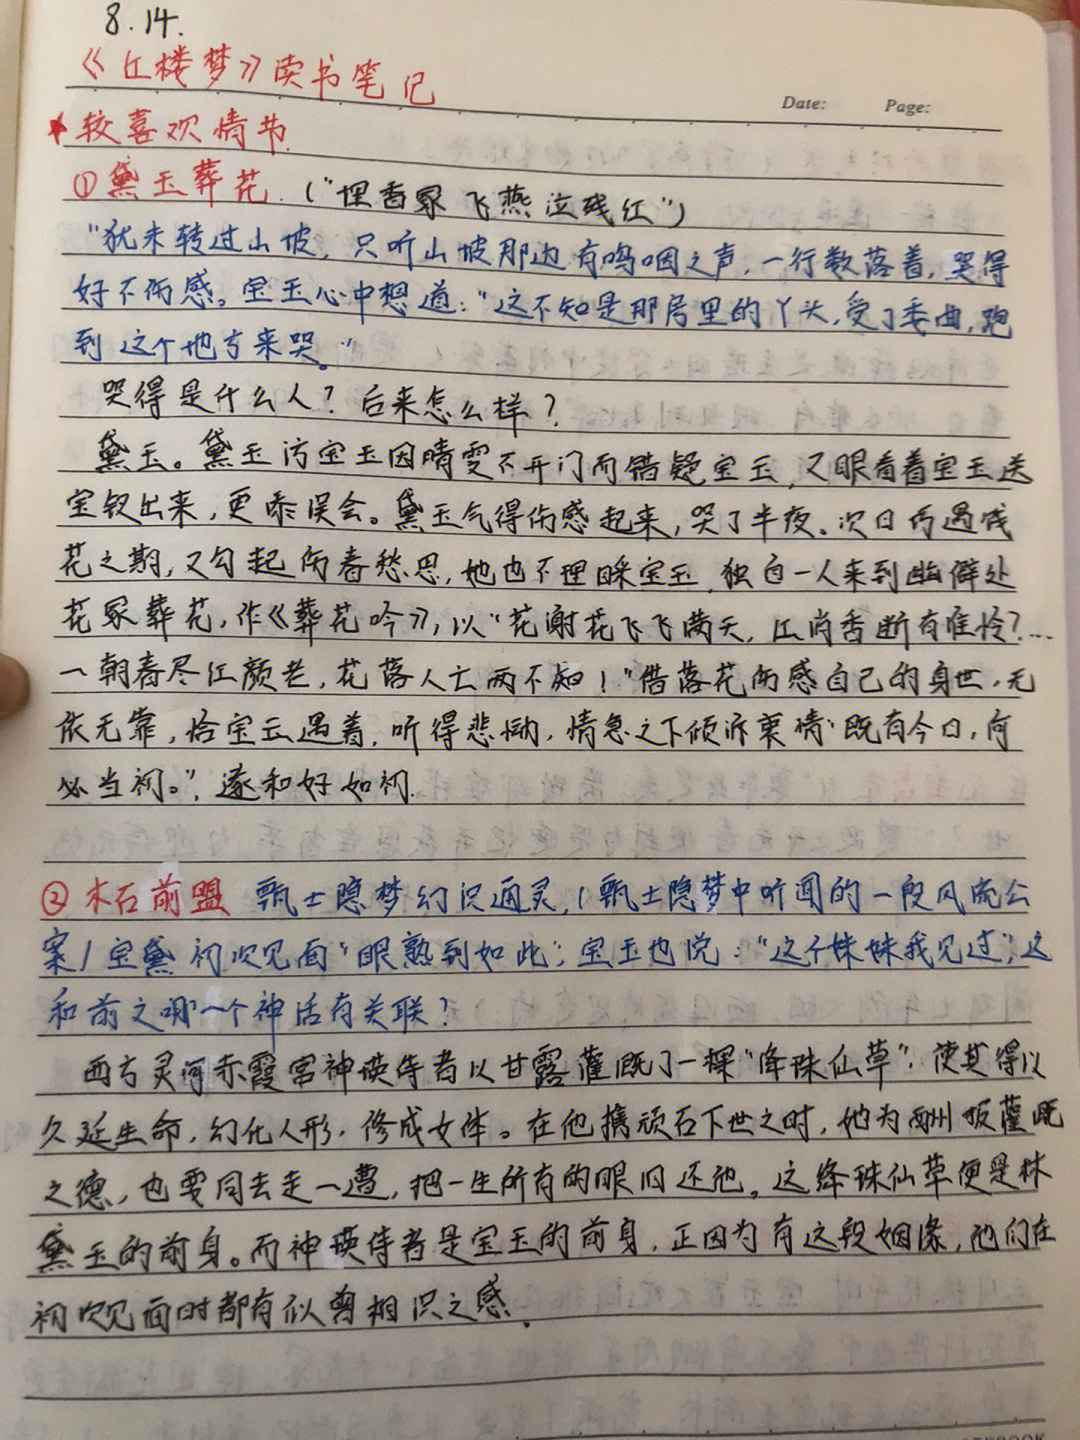 8.14.
《红楼梦》读书笔记
Date: Page:
★较喜欢情节
①黛玉葬花.("埋香冢 飞燕泣残红")
"犹未转过山坡,只听山坡那边有呜咽之声,一行数落着,哭得
好不伤感。宝玉心中想道:"这不知是那房里的丫头,受了委曲,跑
到这个地方来哭。"
哭得是什么人?后来怎么样?
黛玉。黛玉访宝玉因晴雯不开门而错疑宝玉,又眼看着宝玉送
宝钗出来,更添误会。黛玉气得伤感起来,哭了半夜、次日又遇饯
花之期,又勾起伤春愁思,她也不理睬宝玉,独自一人来到幽僻处
花冢葬花,作《葬花吟》,以"花谢花飞飞满天,红消香断有谁怜?...
一朝春尽红颜老,花落人亡两不知!"借落花伤感自己的身世,无
依无靠,恰宝玉遇着,听得悲恸,情急之下倾诉衷情"既有今日,何
必当初。",遂和好如初.
②木石前盟 甄士隐梦幻识通灵,(甄士隐梦中听闻的一段风流公
案)宝黛初次见面"眼熟到如此";宝玉也说:"这个妹妹我见过",这
和前文哪一个神话有关联?
西方灵河赤霞宫神瑛侍者以甘露灌溉了一棵"降珠仙草",使其得以
久延生命,幻化人形,修成女体。在他携顽石下世之时,她为酬报灌溉
之德,也要同去走一遭,把一生所有的眼泪还他。这绛珠仙草便是林
黛玉的前身。而神瑛侍者是宝玉的前身,正因为有这段姻缘,他们在
初次见面时都有似曾相识之感.